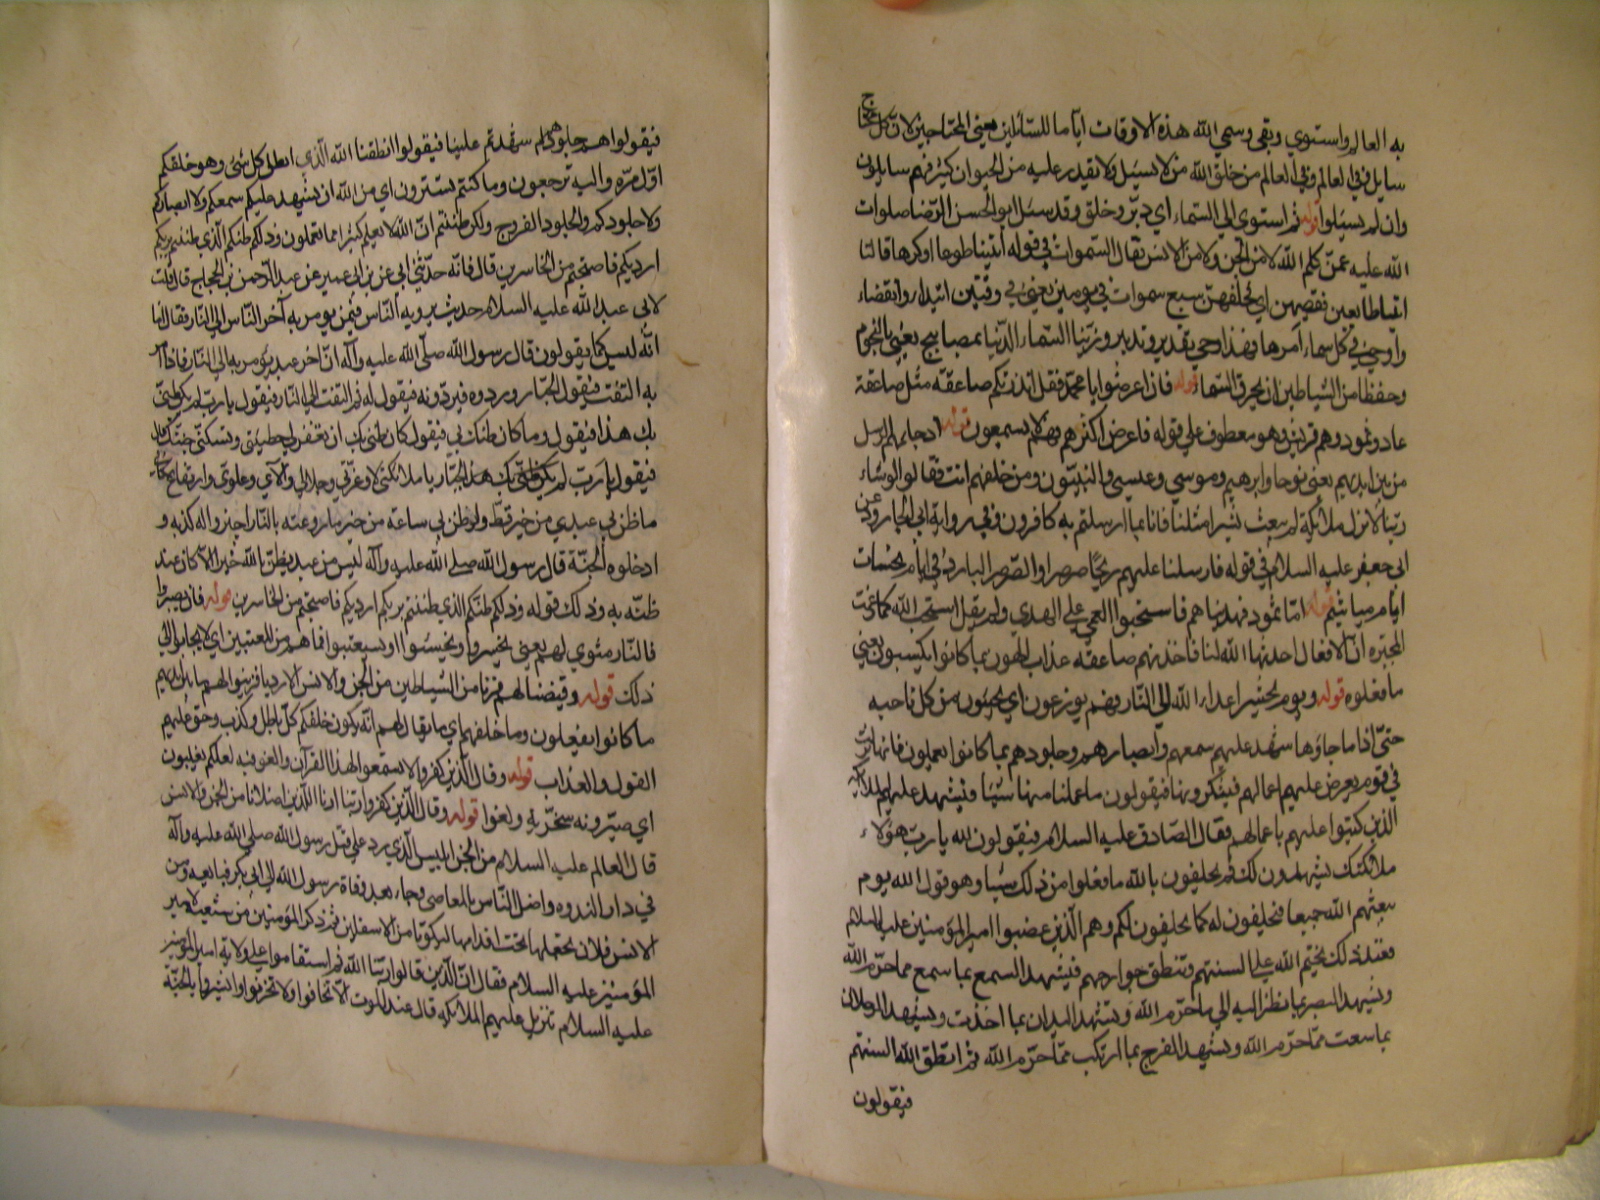 به العالم واستوي وبقي وسمي الله هذه الاوقات اياما للسائلين يعني المحتاجين لان كل محتاج
سايل وفي العالم من خلق الله من لا يسئل ولا يقدر عليه من الحيوان كثير فهم سايلون
وان لم يسيلوا قوله ثم استوي الي السماء اي دبر وخلق وقد سئل ابو الحسن الرضا صلوات
الله عليه عمن كلم الله لا من الجن ولا من الانس فقال السموات في قوله ائتيا طوعا او كرها قالتا
اتينا طائعين فقضيهن اي فخلقهن سبع سموات في يومين يعني في وقتين ابتداء وانقضاء
واوحي في كل سماء امرها فهذا وحي تقدير وتدبير وزينا السماء الدنيا بمصابيح يعني بالنجوم
وحفظا من الشياطين ان يخرق السماء قوله فان اعرضوا يا محمد فقل انذرتكم صاعقة مثل صاعقة
عاد وثمود وهم قريش وهو معطوف علي قوله فاعرض اكثرهم فهم لا يسمعون قوله اذ جاءتهم الرسل
من بين ايديهم يعني نوحا وابرهيم وموسي وعيسي والنبيون ومن خلفهم انت فقالوا لو شاء
ربنا لانزل ملائكة لم يبعث بشرا مثلنا فانا بما ارسلتم به كافرون وفي رواية ابي الجارود عن
ابي جعفر عليه السلام في قوله فارسلنا عليهم ريحا صرصرا والصرصر البارد في ايام نحسات
ايام مياشيم قوله اما ثمود فهديناهم فاستحبوا العمي علي الهدي ولم يقل استحب الله كما زعمت
المجبره ان الافعال احدثها الله لنا فاخذتهم صاعقة عذاب الهون بما كانوا يكسبون يعني
ما فعلوه قوله ويوم يحشر اعداء الله الي النار فهم يوزعون اي يجيئون من كل ناحيه
حتي اذا ما جاؤها شهد عليهم سمعهم وابصارهم وجلودهم بما كانوا يعملون فانها نزلت
في قوم يعرض عليهم اعمالهم فينكرونها فيقولون ما عملنا منها شيئا فيشهد عليهم الملائكة
الذين كتبوا عليهم باعمالهم فقال الصادق عليه السلام فيقولون لله يا رب هؤلاء
ملائكتك يشهدون لك ثم يحلفون بالله ما فعلوا من ذلك شيئا وهو قول الله يوم
يبعثهم الله جميعا فيحلفون له كما يحلفون لكم وهم الذين غصبوا امير المؤمنين عليه السلام
فعند ذلك يختم الله علي السنتهم وتنطق جوارحهم فيشهد السمع بما سمع مما حرم الله
ويشهد البصر بما نظر اليه الي ما حرم الله وتشهد اليدان بما اخذت وتشهد الرجلان
بما سعت مما حرم الله ويشهد الفرج بما ارتكب مما حرم الله ثم انطق الله السنتهم
فيقولون
فيقولوا هم لجلودهم لم شهدتم علينا فيقولوا انطقنا الله الذي انطق كل شئ وهو خلقكم
اول مره واليه ترجعون وما كنتم تستترون اي من الله ان يشهد عليكم سمعكم ولا ابصاركم
ولا جلودكم والجلود الفروج ولكن ظننتم ان الله لا يعلم كثيرا مما تعملون وذلكم ظنكم الذي ظننتم بربكم
ارديكم فاصبحتم من الخاسرين قال فانه حدثني ابي عن بن ابي عمير عن عبد الرحمن بن الحجاج قال قلت
لابي عبد الله عليه السلام حديث يرويه الناس فيمن يومر به آخر الناس الي النار فقال اما
انه ليس كما يقولون قال رسول الله صلي الله عليه وآله ان آخر عبد يؤمر به الي النار فاذا امر
به التفت فيقول الجبار ردوه فيردونه فيقول له لم التفت الي النار فيقول يا رب لم يكن ظني
بك هذا فيقول وما كان ظنك بي فيقول كان ظني بك ان تغفر لي خطيئتي وتسكنني جنتك قال
فيقول يا رب لم يكن ظني بك هذا الجبار يا ملائكتي لا وعزتي وجلالي وآلائي وعلوي وارتفاع مكاني
ما ظن بي عبدي من خير قط ولو ظن بي ساعة من خير ما روعته بالنار اجيزوا له كذبه و
ادخلوه الجنة قال رسول الله صلي الله عليه وآله ليس من عبد يظن بالله خيرا الا كان عند
ظنه به وذلك قوله وذلكم ظنكم الذي ظننتم بربكم ارديكم فاصبحتم من الخاسرين قوله فان يصبروا
فالنار مثوي لهم يعني يخسروا ويخسئوا او يستعتبوا فما هم من المعتبين اي لا يجابوا الي
ذلك قوله وقيضنا لهم قرنا من الشياطين من الجن والانس الارديا فزينوا لهم ما بين ايديهم
ما كانوا يفعلون وما خلفهم اي ما يقال لهم انه يكون خلفكم كل باطل وكذب وحق عليهم
القول والعذاب قوله وقال الذين كفروا لا تسمعوا لهذا القرآن والغوا فيه لعلكم تغلبون
اي صيرونه سخرية ولغوا قوله وقال الذين كفروا ربنا ارنا اللذين اضلانا من الجن والانس
قال العالم عليه السلام من الجن ابليس الذي رد علي قتل رسول الله صلي الله عليه وآله
في دار الندوه واضل الناس بالمعاصي وجاء بعد وفاة رسول الله الي ابي بكر فبايعه ومن
الانس فلان نجعلهما تحت اقدامنا ليكونا من الاسفلين ثم ذكر المؤمنين من شيعة امير
المؤمنين عليه السلام فقال ان الذين قالوا ربنا الله ثم استقاموا علي ولاية امير المؤمنين
عليه السلام تتنزل عليهم الملائكه قال عند الموت الا تخافوا ولا تحزنوا وابشروا بالجنة